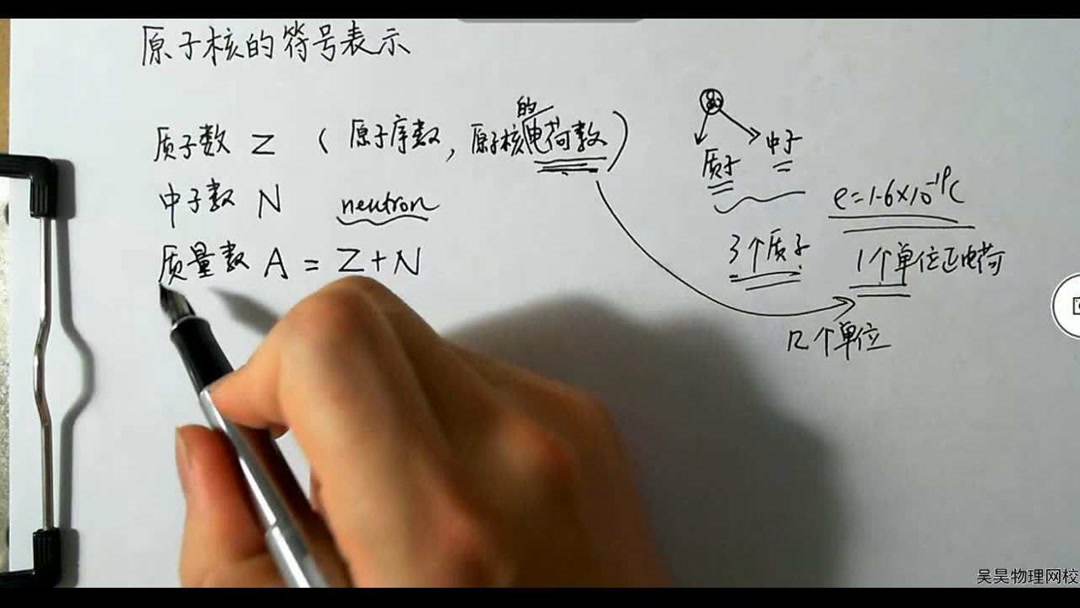 原子核的符号表示
质子数 Z （原子序数，原子核的电荷数）
中子数 N neutron
质量数 A = Z+N
质子 中子
e=1.6×10⁻¹⁹C
3个质子 1个单位正电荷
几个单位
吴昊物理网校